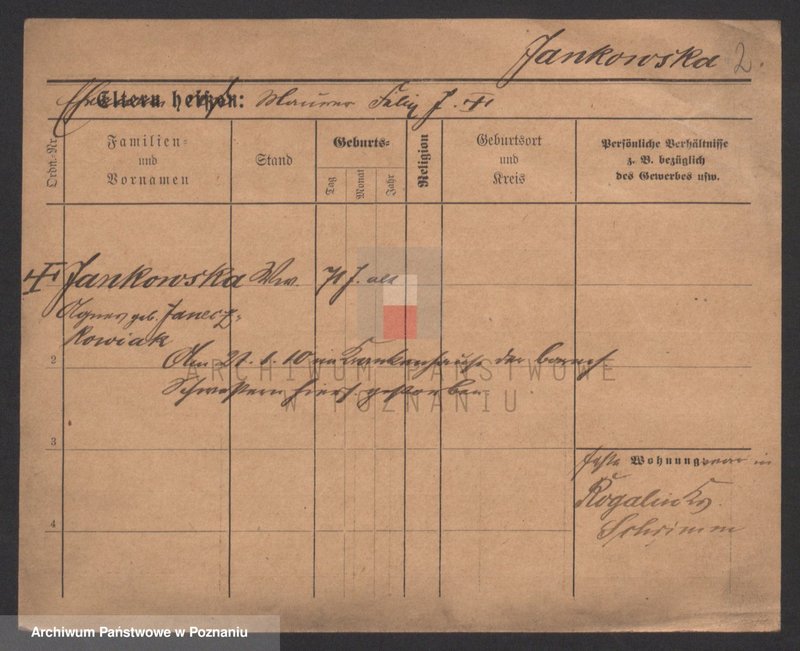 Jankowska 2.
Eltern heißen: Maurer Felix J. ✝
Ordn.-Nr.
Familien-
und
Vornamen
Stand
Geburts-
Tag
Monat
Jahr
Religion
Geburtsort
und
Kreis
Persönliche Verhältnisse
z. B. bezüglich
des Gewerbes usw.
Jankowska Ww. 71 J. alt
Agnes geb. Janecz-
kowiak
Am 21.6.10 im Krankenhause der barmh
2
Schwestern hiers. gestorben
ARCHIWUM PAŃSTWOWE
W POZNANIU
3
Wohnung in
Rogalin Ks.
Schrimm
4
Archiwum Państwowe w Poznaniu